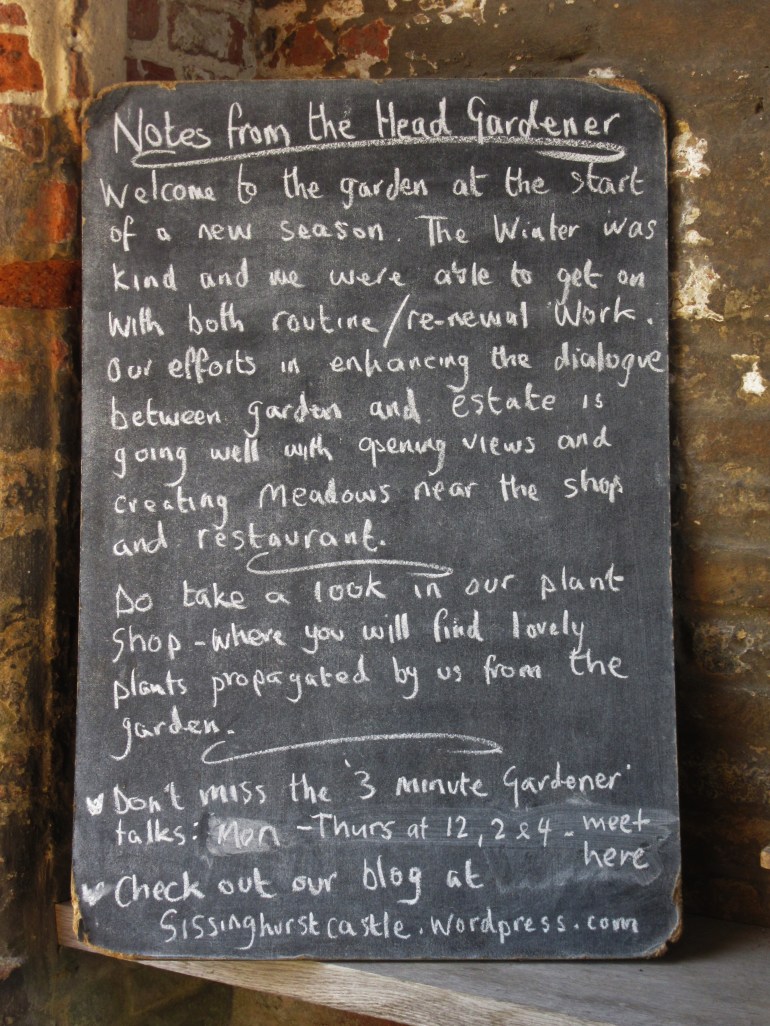 Notes from the Head Gardener
Welcome to the garden at the start
of a new season. The Winter was
kind and we were able to get on
with both routine/re-newal work.
Our efforts in enhancing the dialogue
between garden and estate is
going well with opening views and
creating meadows near the shop
and restaurant.
Do take a look in our plant
shop - where you will find lovely
plants propagated by us from the
garden.
Don't miss the '3 minute Gardener'
talks: Mon - Thurs at 12, 2 & 4 - meet
here
Check out our blog at
Sissinghurstcastle.wordpress.com